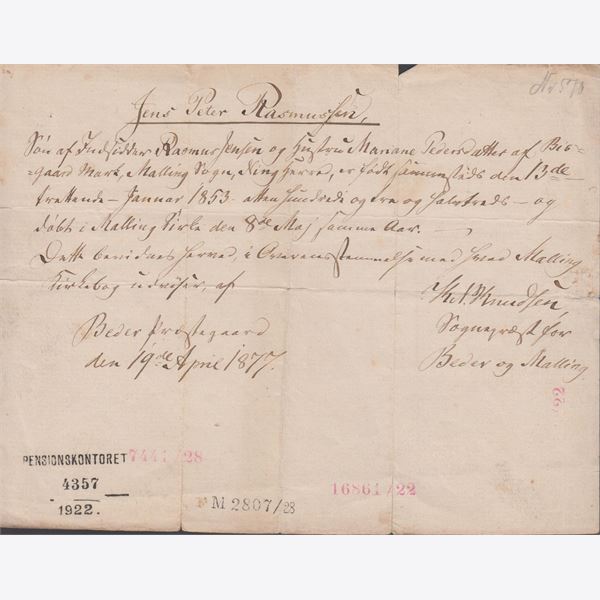 No 578
Jens Peter Rasmussen,
Søn af Indsidder Rasmus Jensen og Hustru Mariane Pedersdatter af Bis-
gaard Mark, Malling Sogn, Ning Herred, er født sammesteds den 13de
trettende – Januar 1853 – atten hundrede og tre og halvtreds – og
døbt i Malling Kirke den 8de Maj samme Aar. –
Dette bevidnes herved, i Overensstemmelse med hvad Malling
Kirkebog udviser, af
Knudsen,
Sognepræst for
Beder og Malling
Beder Præstegaard
den 19de April 1877.
22
PENSIONSKONTORET 7441/28
4357
1922.
M 2807/28
16861/22